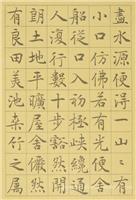 盡水源便得一山山有
小口仿佛若有光便舍
船從口入初極狹纔通
人復行數十步豁然開
朗土地平曠屋舍儼然
有良田美池桑竹之屬